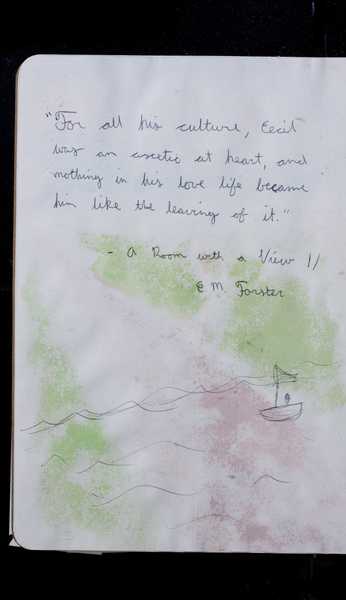 "For all his culture, Cecil
was an ascetic at heart, and
nothing in his love life became
him like the leaving of it."
- A Room with a View //
E. M. Forster